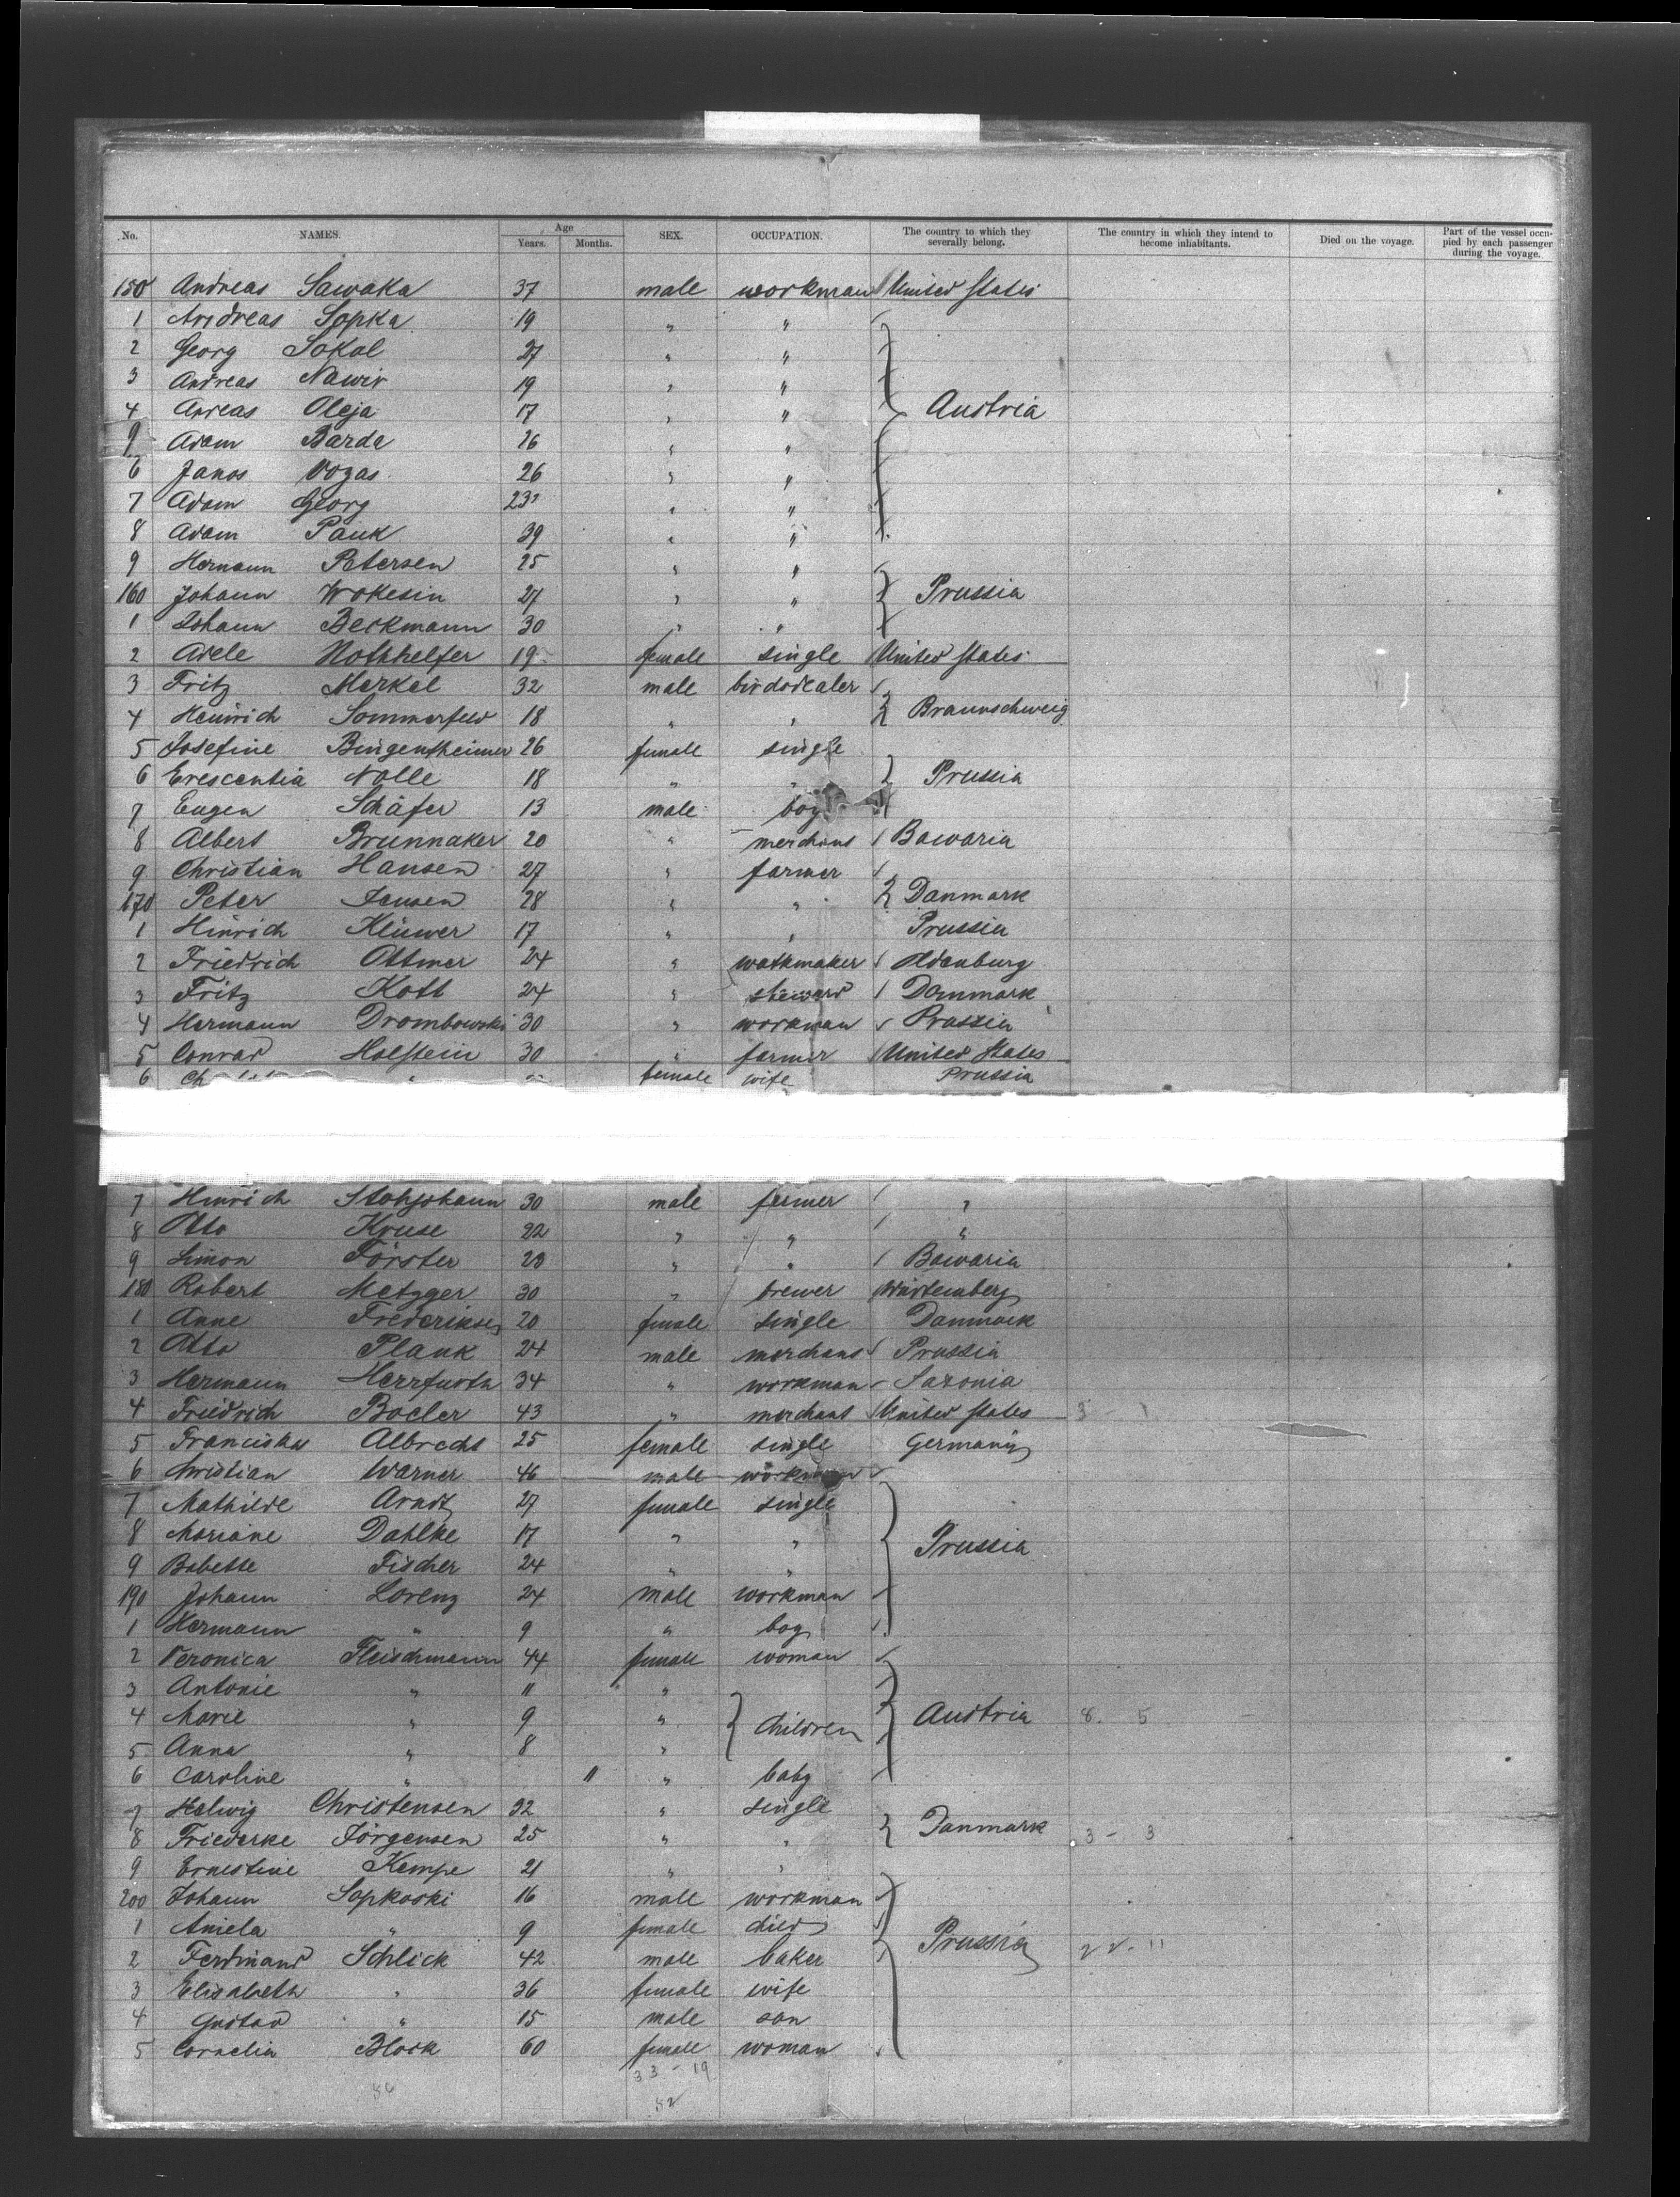 No. NAMES. Age Years. Months. SEX. OCCUPATION. The country to which they severally belong. The country in which they intend to become inhabitants. Died on the voyage. Part of the vessel occupied by each passenger during the voyage.
150 Andreas Sawaka 37 male workman United States
1 Andreas Sopka 19 " "
2 Georg Sokol 27 " "
3 Andreas Nawir 19 " "
4 Anreas Oleja 17 " " Austria
Adam Barda 26 " "
6 Janos Vozas 26 " "
7 Adam Georg 23 " "
8 Adam Pauk 39 " "
9 Hermann Petersen 25 " "
160 Johann Wokesin 27 " " Prussia
1 Johann Beckmann 30 " "
2 Adele Nothhelfer 19 female single United States
3 Fritz Merkel 32 male birddealer
4 Heinrich Sommerfeld 18 " " Braunschweig
5 Josefine Bingensheimer 26 female single
6 Crescentia Nolle 18 " " Prussia
7 Eugen Schäfer 13 male boy
8 Albert Brunnaker 20 " merchant Bawaria
9 Christian Hansen 27 " farmer
170 Peter Jensen 28 " " Danmark
1 Hinrich Klüwer 17 " " Prussia
2 Friedrich Ottmer 24 " watkmaker Oldenburg
3 Fritz Kott 24 " steward Danmark
4 Hermann Drombowski 30 " workman Prussia
5 Conrad Holstein 30 " farmer United States
6 " female wife Prussia
7 Hinrich Stohjohann 30 male farmer "
8 Otto Kruse 22 " " "
9 Simon Förster 23 " " Bawaria
180 Robert Metzger 30 " brewer Würtemberg
1 Anne Frederiksen 20 female single Danmark
2 Otto Plauk 24 male merchant Prussia
3 Hermann Herrfurth 34 " workman Saxonia
4 Friedrich Bocler 43 " merchant United States 3 - 1
5 Franciska Albrecht 25 female single Germany
6 Christian Warner 46 male workman
7 Mathilde Arndt 27 female single
8 Mariane Dahlke 17 " " Prussia
9 Babette Fischer 24 " "
190 Johann Lorenz 24 male workman
1 Hermann " 9 " boy
2 Veronica Fleischmann 44 female woman
3 Antonie " 11 "
4 Marie " 9 " children Austria 8. 5
5 Anna " 8 "
6 Caroline " 11 " baby
7 Helwig Christensen 32 " single
8 Friederke Jörgensen 25 " " Danmark 3 - 3
9 Ernestine Kempe 21 " "
200 Johann Sopkoski 16 male workman
1 Aniela " 9 female child Prussia
2 Ferdinand Schlick 42 male baker 22. 11
3 Elisabeth " 36 female wife
4 Gustav " 15 male son
5 Cornelia Block 60 female woman
33 - 19
52